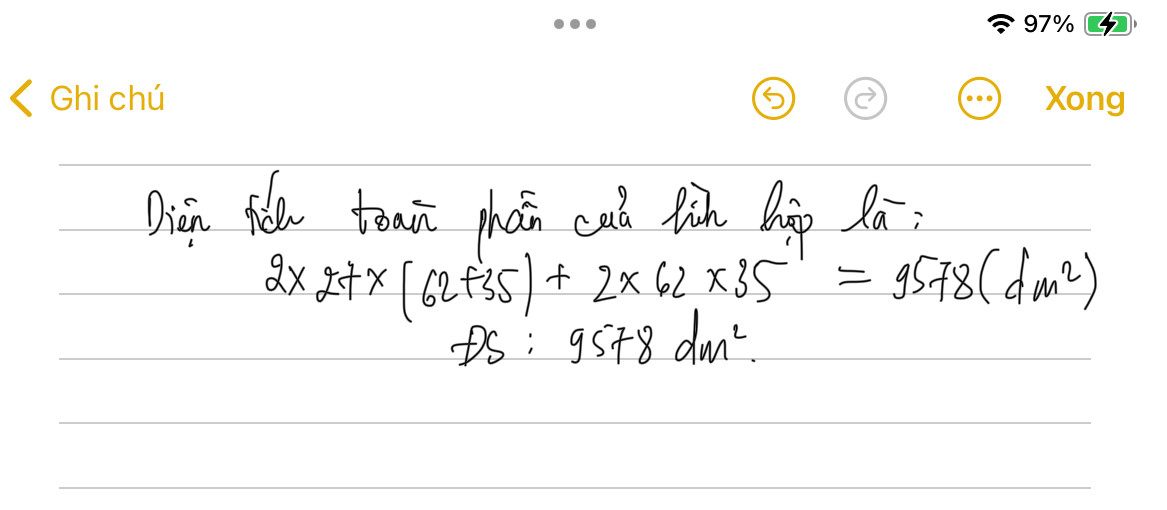 97%
Ghi chú Xong
Diện tích toàn phần của hình hộp là:
2 x 27 x (62+35) + 2 x 62 x 35 = 9578 (dm²)
ĐS : 9578 dm².